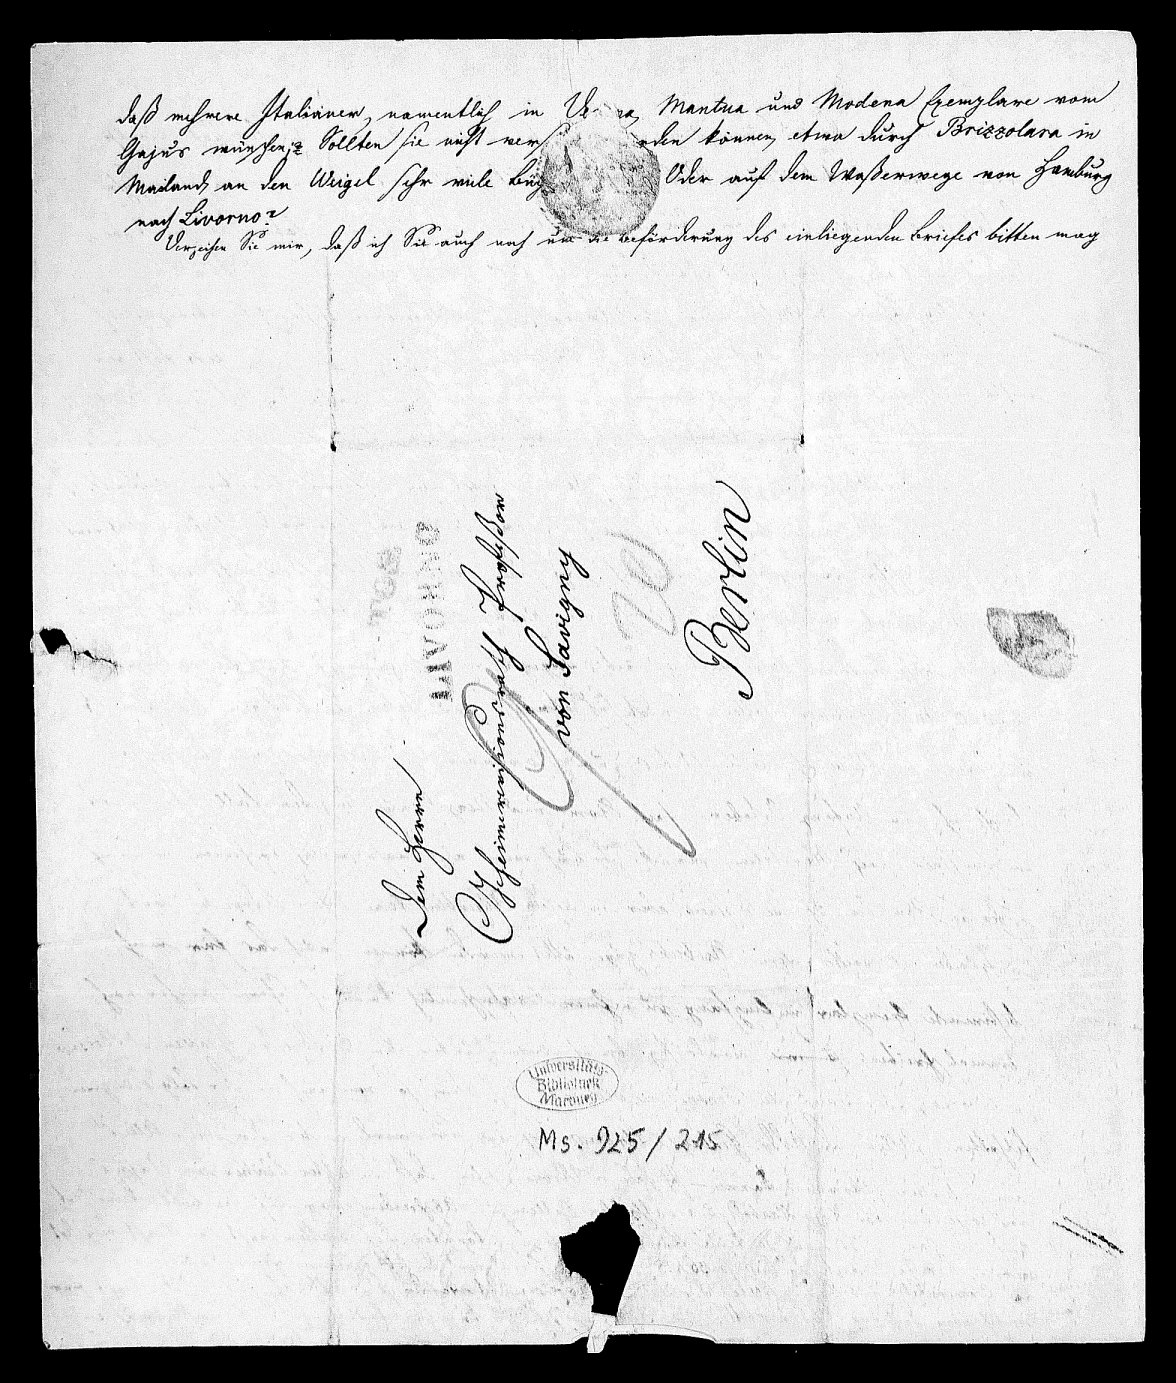 daß mehrere Italiäner, namentlich in Mantua und Modena Exemplare vom
Gajus wünschen? Sollten sie nicht können, etwa durch Brizzolara in
Mailand, an den Weigel sehr viele Oder auf dem Waßerwege von Hamburg
nach Livorno?
Verzeihen Sie mir, daß ich Sie auch noch um die Beförderung des einliegenden Briefes bitten mag
LIVORNO
Dem Herrn
Geheimerevisionsrath Professor
von Savigny
Berlin
Universitäts-
Bibliothek
Marburg
Ms. 925/215